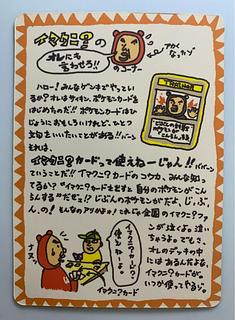 イマクニ?の
オレにも
言わせろ!!
のコーナー
アカく
なったゾ
ハロー!みんなゲンキでやってい
るか?オレはサイキン、ポケモンカードを
はじめちのだ!!ポケモンカードはひ
じょうにおもしろいけれど、ひとつ
文句をいいたいことがある!!バーン
それは、
イマクニ?カードって使えねーじゃん!!バババーン
ということだ!!イマクニ?カードのコウカ、みんな知っ
てるか?"イマクニ?カードを出すと自分のポケモンがこん
らんする"だぜ!?じぶんのポケモンがだよ、じ、ぶ、
ん、の!そんなのアリかよォ!これじゃ全国のイマクニ?ファ
ンが泣くよ。泣い
ちゃうよ。でもさ、
オレのデッキの中
には あるんだよな、
イマクニ?カードが。
いつか使ってやるゾ。
イマクニ?カード
使えねーよ。
ナヌッ
イマクニ?カード